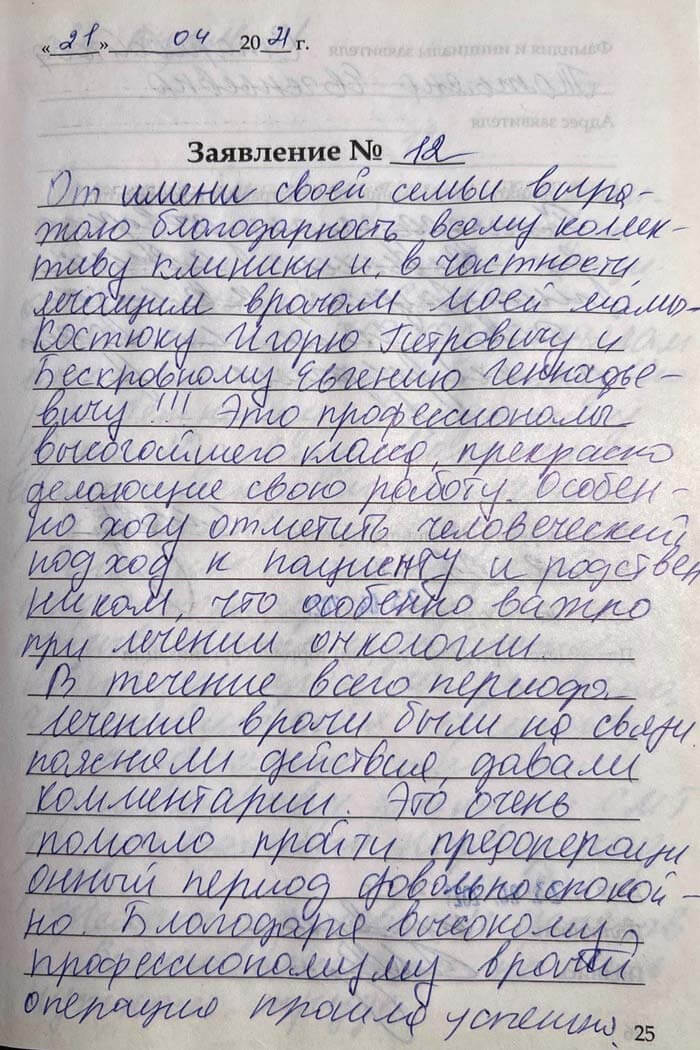 « 21 » 04 2021 г.
Заявление № 12
От имени своей семьи выра-
жаю благодарность всему коллек-
тиву клиники и, в частности
лечащим врачам моей мамы-
Костюку Игорю Петровичу и
Бескровному Евгению Геннадье-
вичу!!! Это профессионалы
высочайшего класса, прекрасно
делающие свою работу. Особен-
но хочу отметить человеческий
подход к пациенту и родствен
никам, что особенно важно
при лечении онкологии.
В течение всего периода
лечения врачи были на связи
поясняли действия давали
комментарии. Это очень
помогло пройти предопераци
онный период довольно спокой-
но. Благодаря высокому
профессионализму врачей
операция прошла успешно.
25